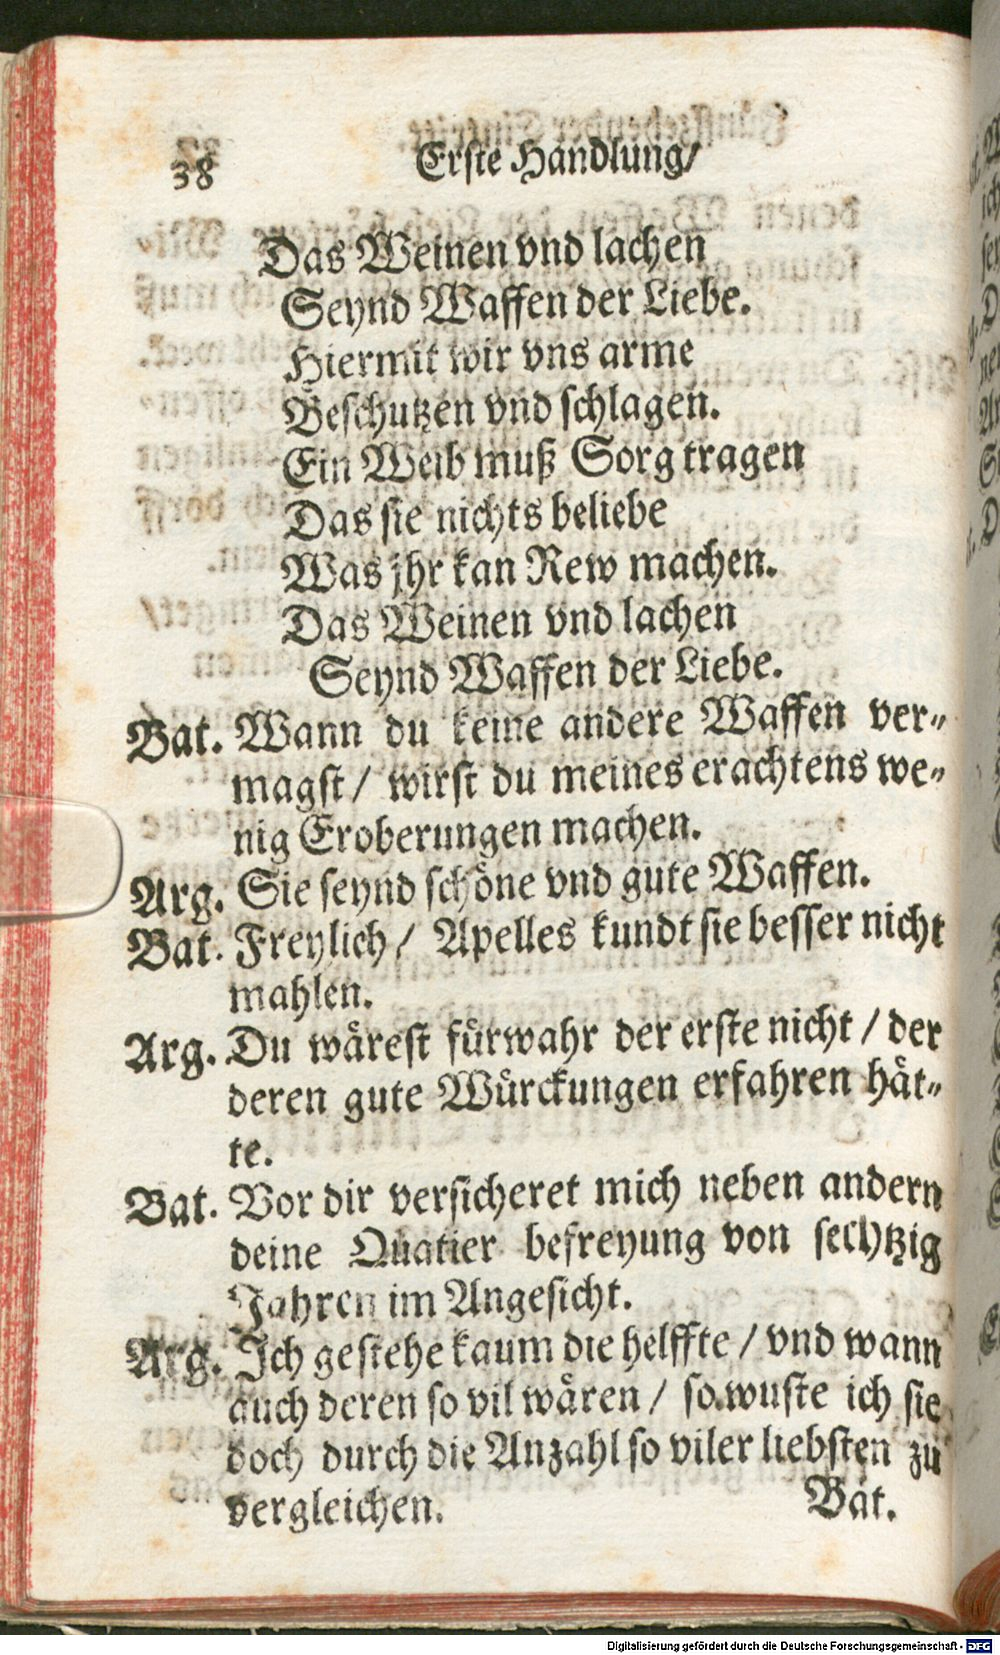 38 Erste Handlung/
Das Weinen vnd lachen
Seynd Waffen der Liebe.
Hiermit wir vns arme
Beschutzen vnd schlagen.
Ein Weib muß Sorg tragen
Das sie nichts beliebe
Was jhr kan Rew machen.
Das Weinen vnd lachen
Seynd Waffen der Liebe.
Bat. Wann du keine andere Waffen ver-
magst/ wirst du meines erachtens we-
nig Eroberungen machen.
Arg. Sie seynd schöne vnd gute Waffen.
Bat. Freylich/ Apelles kundt sie besser nicht
mahlen.
Arg. Du wärest fürwahr der erste nicht/ der
deren gute Würckungen erfahren hät-
te.
Bat. Vor dir versicheret mich neben andern
deine Quatier befreyung von sechtzig
Jahren im Angesicht.
Arg. Ich gestehe kaum die helffte/ vnd wann
auch deren so vil wären/ so wuste ich sie
doch durch die Anzahl so viler liebsten zu
vergleichen.
Bat.
Digitalisierung gefördert durch die Deutsche Forschungsgemeinschaft - DFG